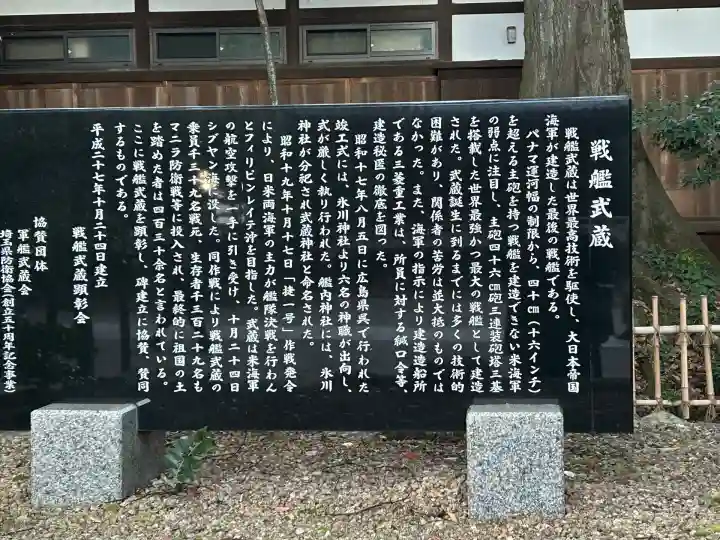 戦艦武蔵
戦艦武蔵は世界最高技術を駆使し、大日本帝国
海軍が建造した最後の戦艦である。
パナマ運河幅の制限から、四十㎝(十六インチ)
を超える主砲を持つ戦艦を建造できない米海軍
の弱点に注目し、主砲四十六㎝砲三連装砲塔三基
を搭載した世界最強かつ最大の戦艦として建造
された。武蔵誕生に到るまでには多くの技術的
困難があり、関係者の苦労は並大抵のものでは
なかった。また、海軍の指示により建造造船所
である三菱重工業は、所員に対する緘口令等、
建造秘匿の徹底を図った。
昭和十七年八月五日に広島県呉で行われた
竣工式には、氷川神社より六名の神職が出向し、
式が厳しく執り行われた。艦内神社には、氷川
神社が分祀され武蔵神社と命名された。
昭和十九年十月十七日「捷一号」作戦発令
により、日米両海軍の主力が艦隊決戦を行わん
とフィリピン・レイテ沖を目指した。武蔵は米海軍
の航空攻撃を一手に引き受け、十月二十四日
シブヤン海に没した。同作戦により戦艦武蔵の
乗員千三十九名戦死、生存者千三百二十九名も
マニラ防衛戦等に投入され、最終的に祖国の土
を踏めた者は四百三十余名と言われている。
ここに戦艦武蔵を顕彰し、碑建立に協賛、賛同
するものである。
平成二十七年十月二十四日建立
戦艦武蔵顕彰会
協賛団体
軍艦武蔵会
埼玉県防衛協会(創立五十周年記念事業)